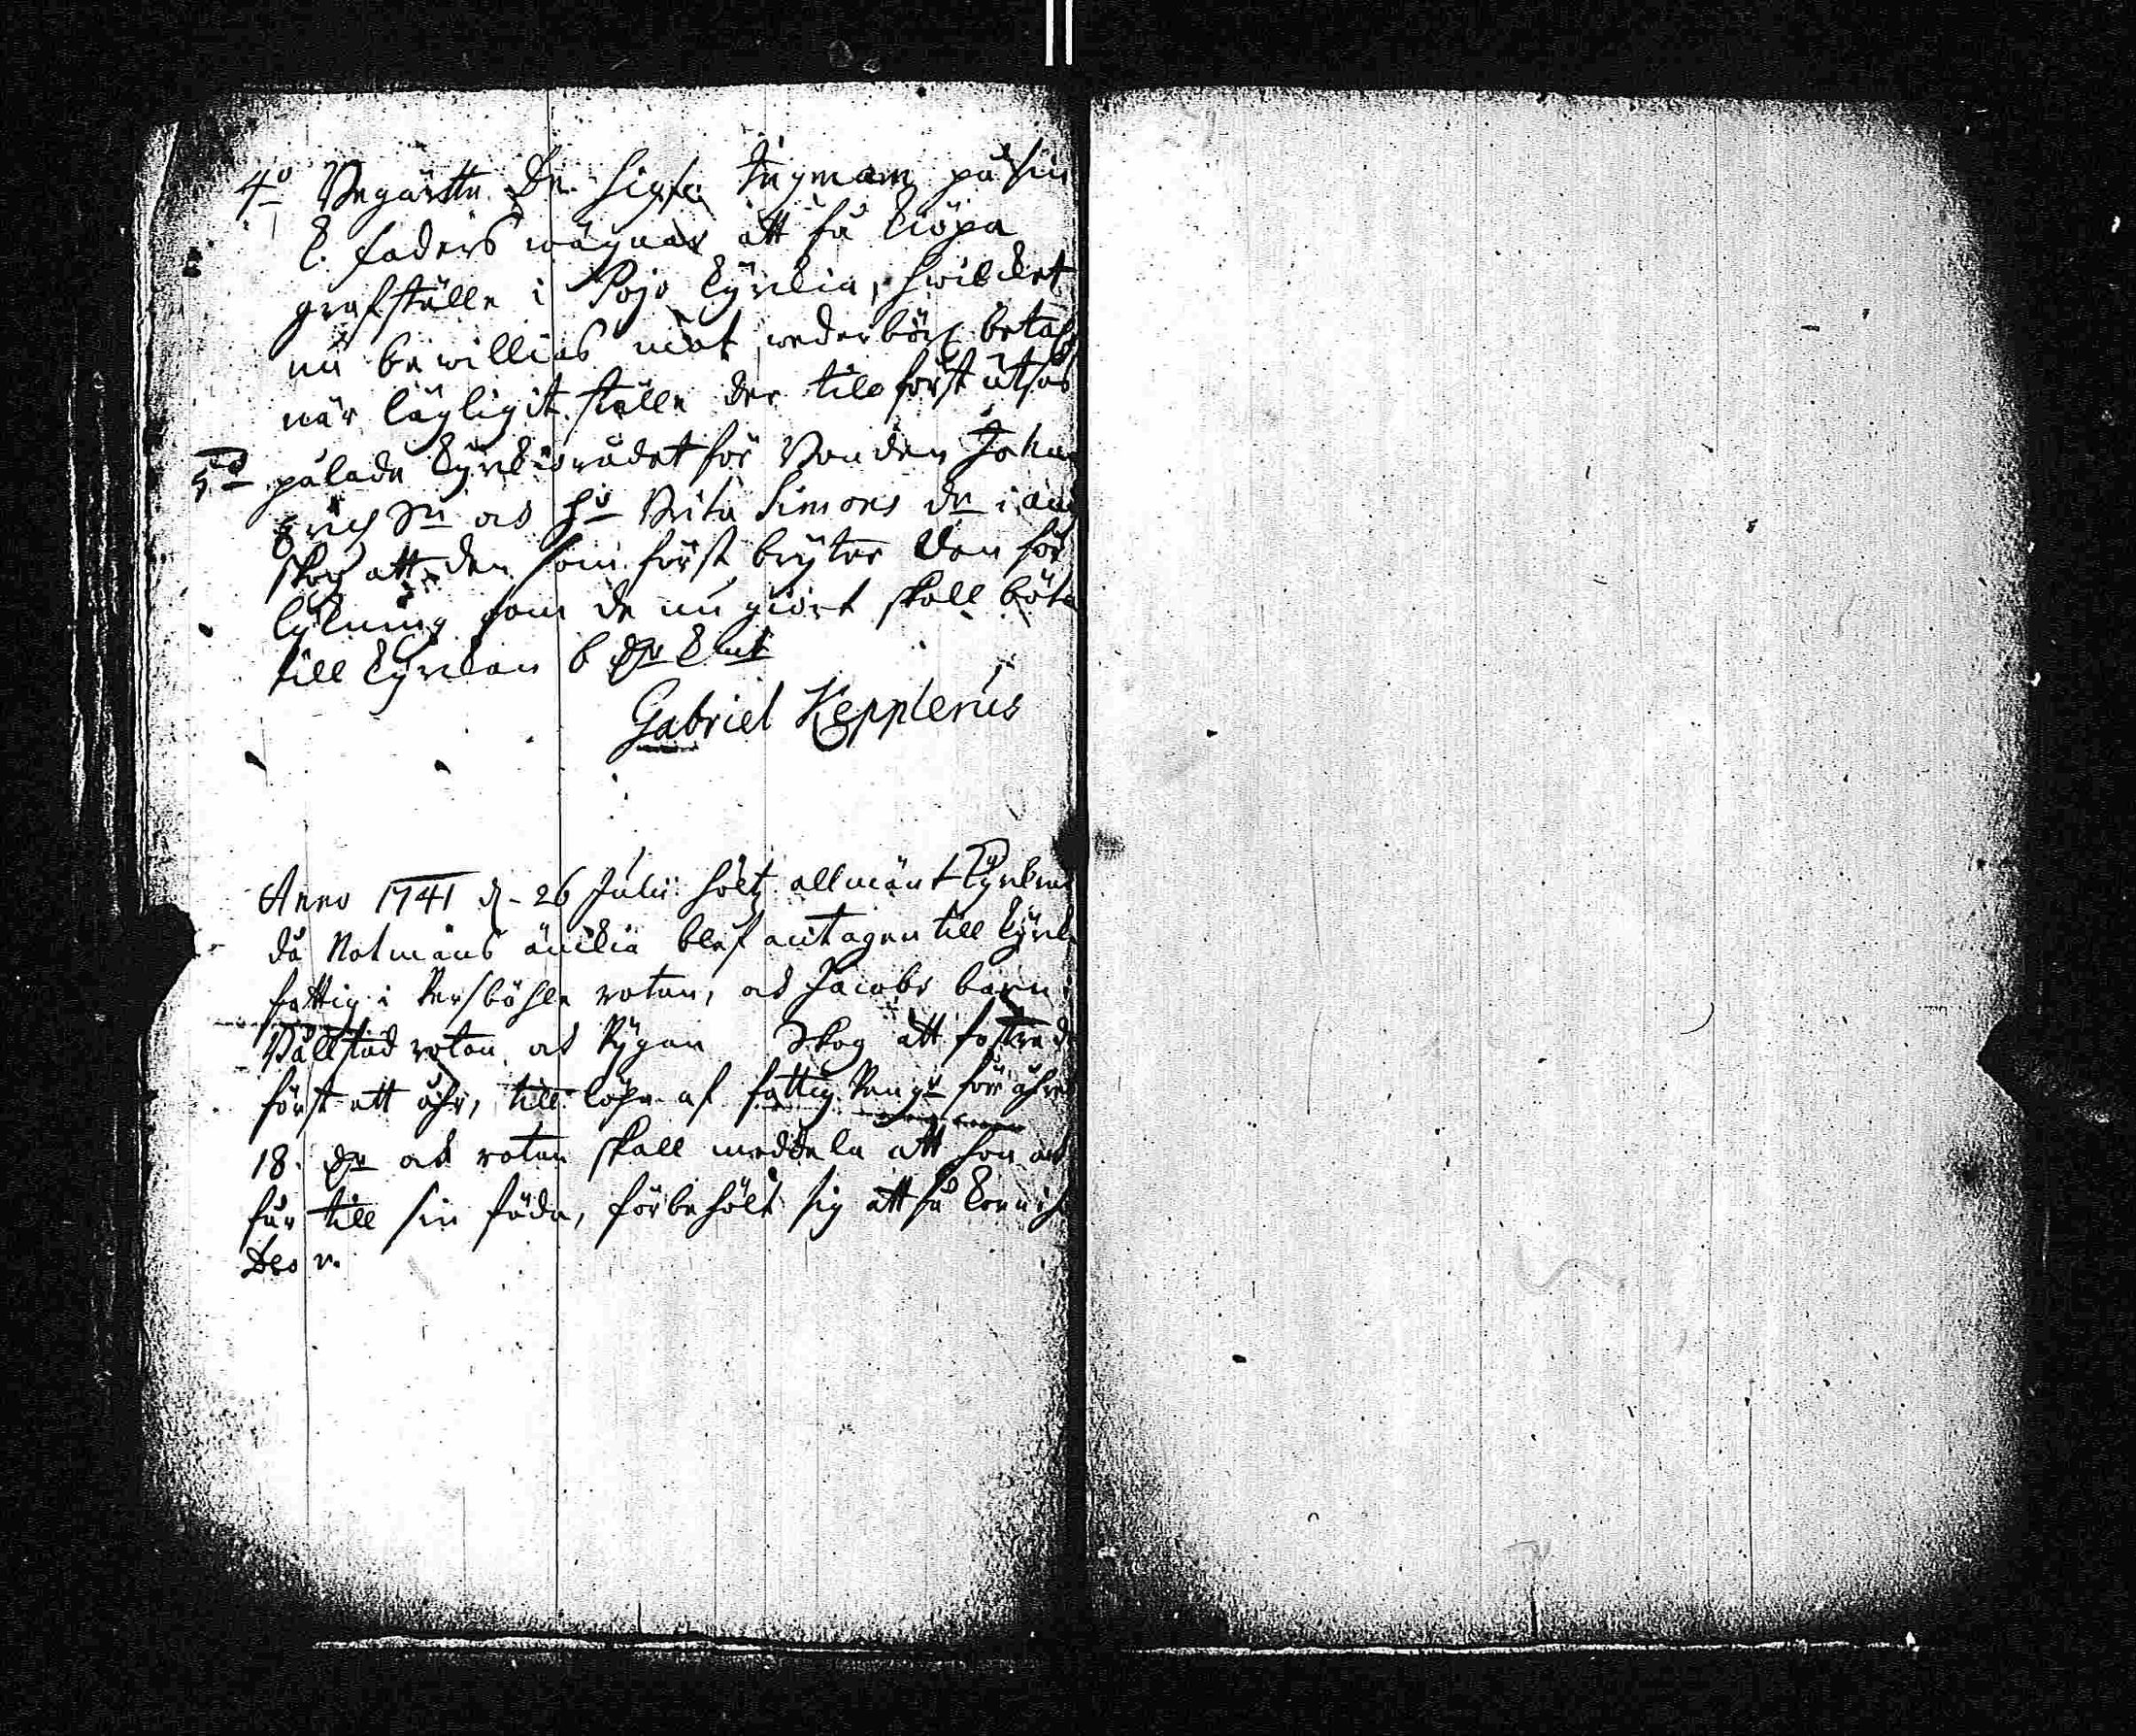 4o Begärtte Hr Sigfr. Tugmann på sin
k. faders wägnar att få kiöpa
grafställe i Pojo kyrckia, hwilcket
nu bewillias mot wederbörl. betaln
när lägligit ställe der till först utsås
5o pålade kyrckiorådet för Bonden Johan
Erichsn och Ho Brita Simons dr i
skog att den som först bryter den för
lykning som de nu giort skall böta
till kyrckan 6 dr kmt
Gabriel Kepplerus
Anno 1741 d. 26 Julii höltz allmänt kyrckio
då Notmans änckia blef antagen till kyrck
fattig i Persböhle rotan, och Jacobs barn i
Bällstad rotan och Skog att fostra de
först ett åhr, till löhn af fattig Peng: för åhret
18. dr och rotan skall meddela att hon och
får till sin föda, förbehölt sig att få